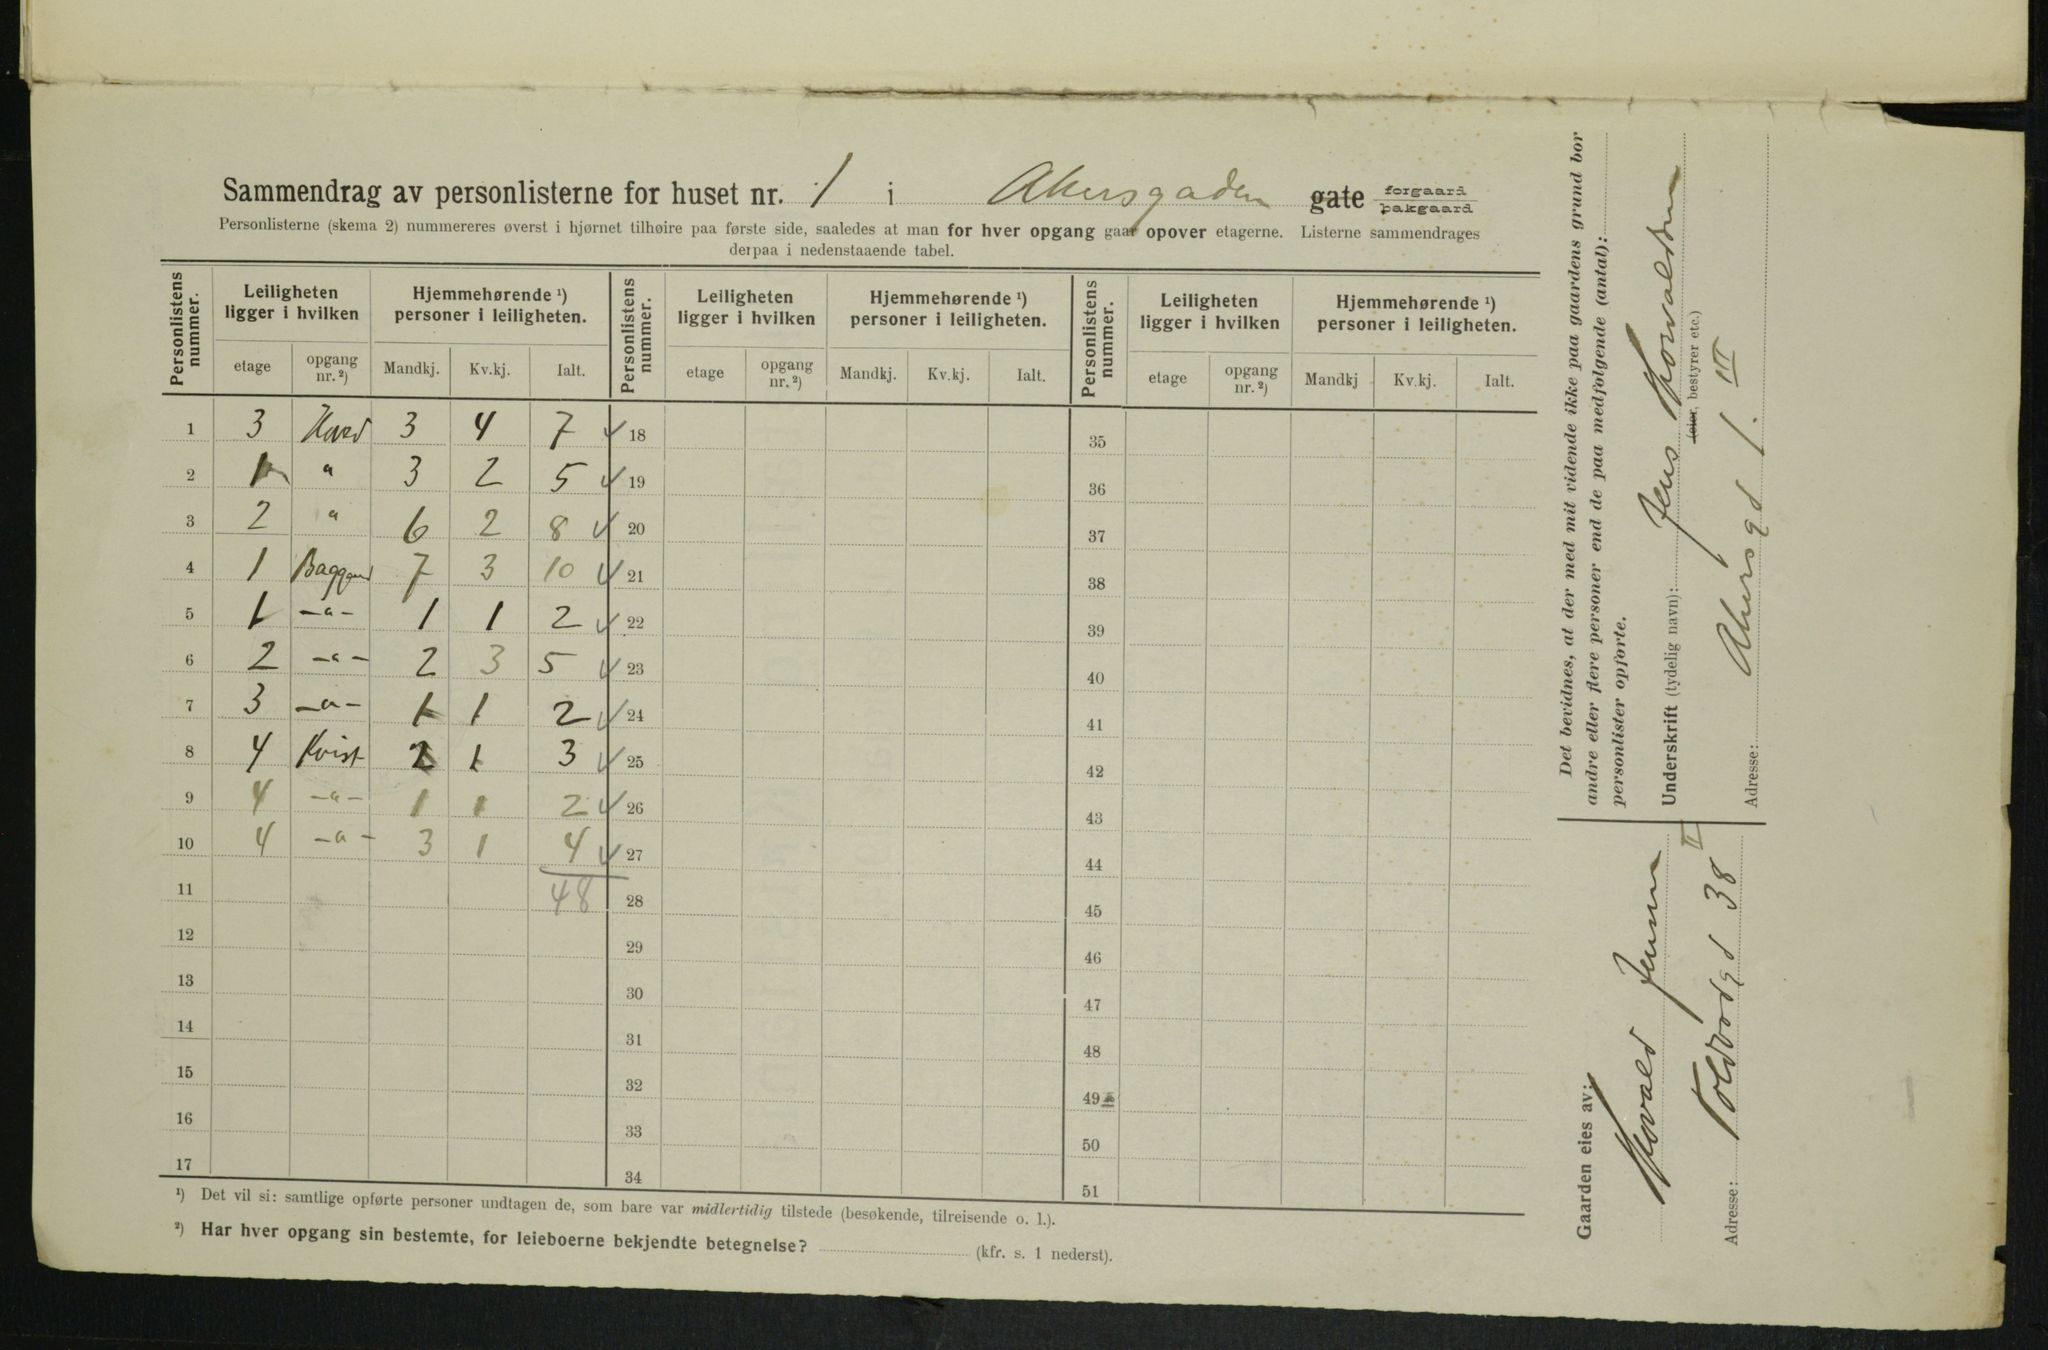 Sammendrag av personlisterne for huset nr. 1 i Akersgaden gate forgaard bakgaard
Personlisterne (skema 2) nummereres øverst i hjørnet tilhøire paa første side, saaledes at man for hver opgang gaar opover etagerne. Listerne sammendrages
derpaa i nedenstaaende tabel.
Personlistens nummer. Leiligheten ligger i hvilken Hjemmehørende ¹) personer i leiligheten. Personlistens nummer. Leiligheten ligger i hvilken Hjemmehørende ¹) personer i leiligheten. Personlistens nummer. Leiligheten ligger i hvilken Hjemmehørende ¹) personer i leiligheten.
etage opgang nr. ²) Mandkj. Kv.kj. Ialt. etage opgang nr. ²) Mandkj. Kv.kj. Ialt. etage opgang nr. ²) Mandkj Kv.kj. Ialt.
1 3 Hoved 3 4 7 18 35
2 1 " 3 2 5 19 36
3 2 " 6 2 8 20 37
4 1 Baggaard 7 3 10 21 38
5 1 -"- 1 1 2 22 39
6 2 -"- 2 3 5 23 40
7 3 -"- 1 1 2 24 41
8 4 Kvist 2 1 3 25 42
9 4 -"- 1 1 2 26 43
10 4 -"- 3 1 4 27 44
11 48 28 45
12 29 46
13 30 47
14 31 48
15 32 49
16 33 50
17 34 51
¹) Det vil si: samtlige opførte personer undtagen de, som bare var midlertidig tilstede (besøkende, tilreisende o. l.).
²) Har hver opgang sin bestemte, for leieboerne bekjendte betegnelse? (kfr. s. 1 nederst).
Det bevidnes, at der med mit vidende ikke paa gaardens grund bor
andre eller flere personer end de paa medfølgende (antal):
personlister opførte.
Underskrift (tydelig navn): Jens Thorvaldsen
(eier, bestyrer etc.)
Adresse: Akersgd 1. III
Gaarden eies av:
Thorvald Jensen
Adresse: Toldbodgd 38 II